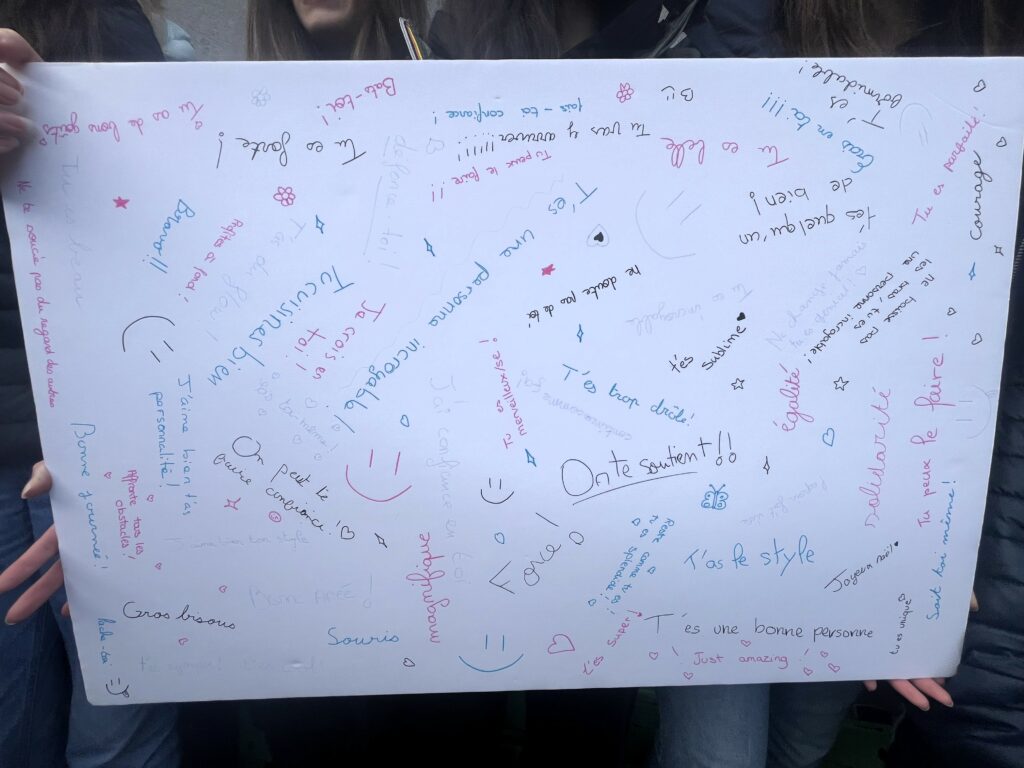 Tu as de bons goûts
Bats-toi !
fais-ta confiance !
B
Tu es forte !
Tu vas y arriver !!!!!!
Tu peux le faire !!
Tu es belle
T'es
formidable !
Crois en ta !!!
Tu es parfaite !
Courage
Ne te soucie pas du regard des autres
Tu es beau
Bravo !!
défends-toi !
T'es une personne incroyable !
t'es quelqu'un
de bien !
ne doute pas de toi
Tu es incroyable
ne baisse pas
les bras, tu es
une personne incroyable !
Tu cuisines bien
Je crois en
toi !
t'es sublime
égalité
solidarité
Tu peux le faire !
J'aime bien t'as
personnalité !
Tu es
merveilleux/se !
T'es trop drôle !
J'ai confiance en toi
On peut te
faire confiance !
On te soutient !!
Bonne journée !
Affronte tous les
obstacles !
J'aime bien ton style
magnifique
Force !
Reste comme tu es
tu es splendide !
T'as le style
Joyeux noël
Soit toi même !
Gros bisous
Souris
T'es super !
T'es une bonne personne
tu es unique
Just amazing !